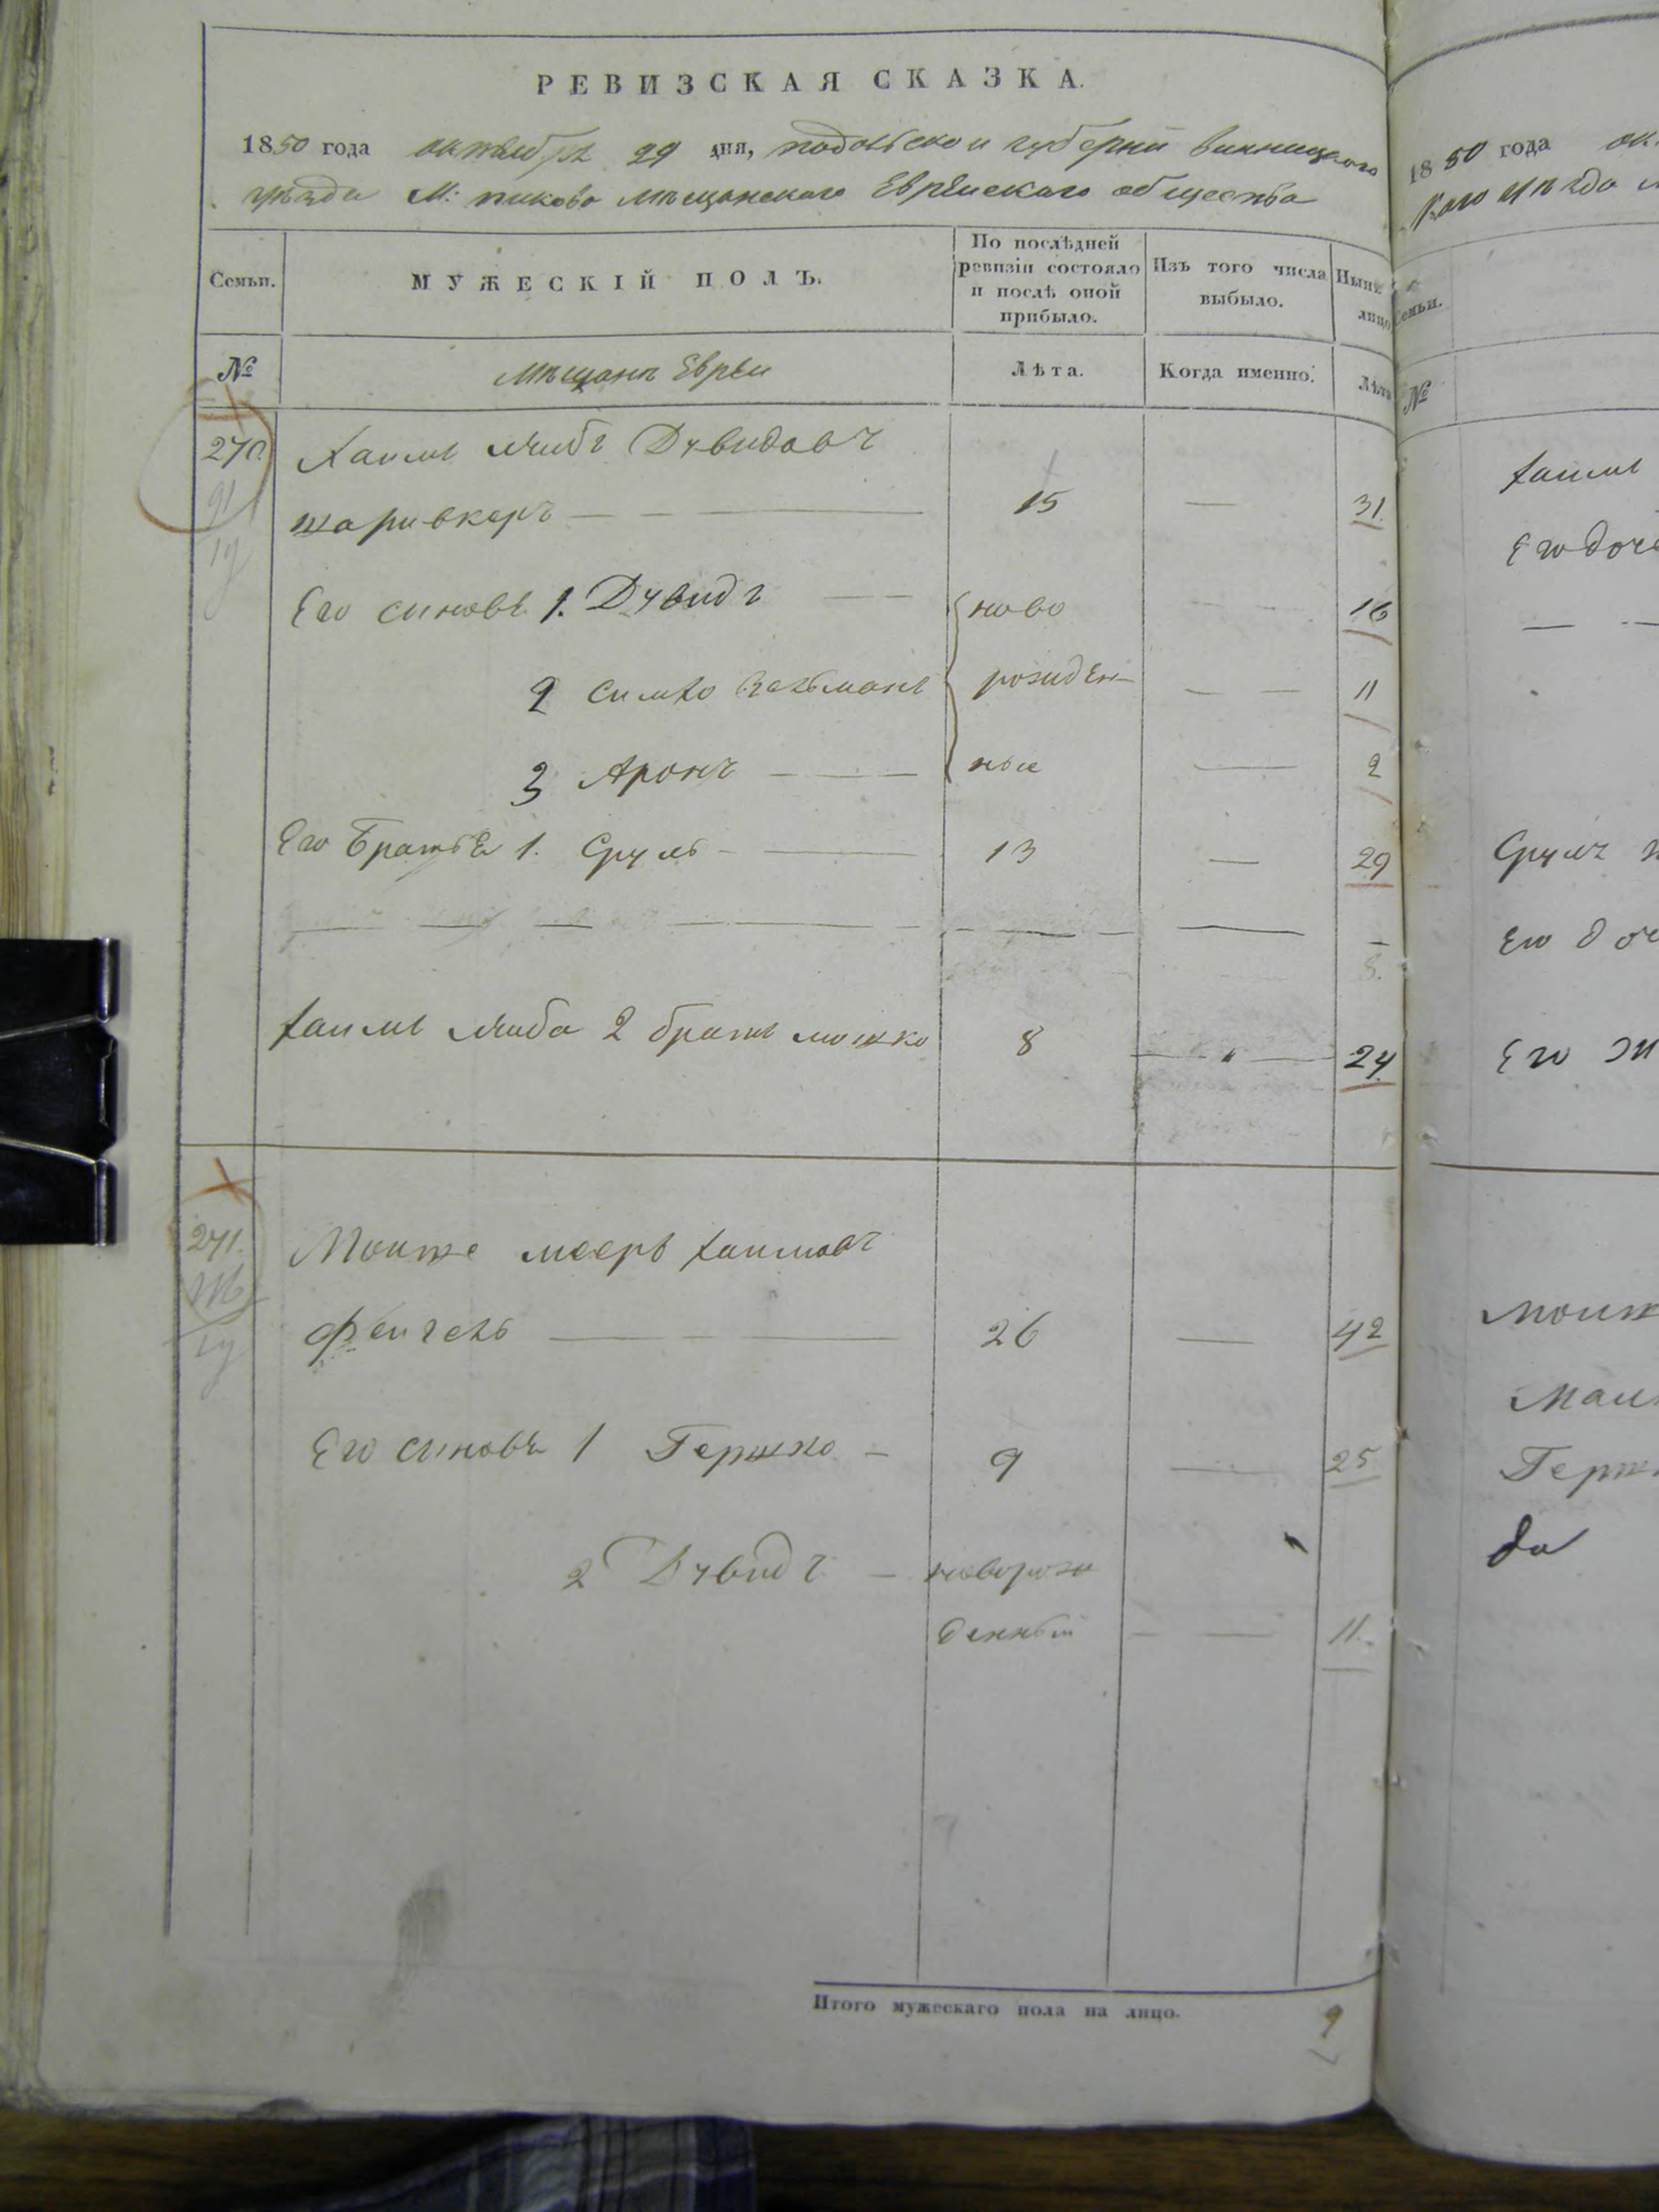 РЕВИЗСКАЯ СКАЗКА.
1850 года октября 29 дня, подольской губернии винницкого
уезда М: пикова мещанского Еврейского общества
Семьи.
МУЖЕСКІЙ ПОЛЪ.
По послѣдней ревизіи состояло и послѣ оной прибыло.
Изъ того числа выбыло.
Нынѣ лицо
№
мещане Евреи
Лѣта.
Когда именно.
Лѣта
270. Хаимъ Лейбъ Дувидовъ
шаривкеръ — 15 — 31.
Его синовѣ 1. Дувидъ — ново — 16
2 Симхо Зельманъ рожден — 11
3 Аронъ — ные — 2
Его Братьѣ 1. Сруль — 13 — 29
Хаимъ Лейба 2 братъ мошко 8 — " — 24.
271. Мошке мееръ Хаимовъ
Фейгель — 26 — 42
Его синовѣ 1 Гершко — 9 — 25
2 Дувидъ —новорож
денный — 11.
Итого мужескаго пола на лицо. 9
1850 года
Семьи.
№
Хаимъ
Его доч
Сруль
Его до
Его
Гершк